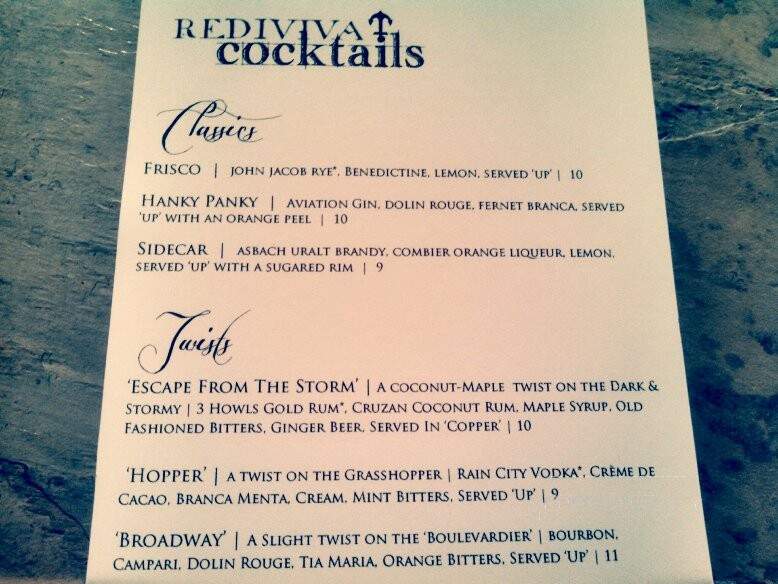 REDIVIVA
cocktails
Classics
FRISCO | JOHN JACOB RYE*, BENEDICTINE, LEMON, SERVED 'UP' | 10
HANKY PANKY | AVIATION GIN, DOLIN ROUGE, FERNET BRANCA, SERVED
'UP' WITH AN ORANGE PEEL | 10
SIDECAR | ASBACH URALT BRANDY, COMBIER ORANGE LIQUEUR, LEMON,
SERVED 'UP' WITH A SUGARED RIM | 9
Twists
'ESCAPE FROM THE STORM' | A COCONUT-MAPLE TWIST ON THE DARK &
STORMY | 3 HOWLS GOLD RUM*, CRUZAN COCONUT RUM, MAPLE SYRUP, OLD
FASHIONED BITTERS, GINGER BEER, SERVED IN 'COPPER' | 10
'HOPPER' | A TWIST ON THE GRASSHOPPER | RAIN CITY VODKA*, CRÈME DE
CACAO, BRANCA MENTA, CREAM, MINT BITTERS, SERVED 'UP' | 9
'BROADWAY' | A SLIGHT TWIST ON THE 'BOULEVARDIER' | BOURBON,
CAMPARI, DOLIN ROUGE, TIA MARIA, ORANGE BITTERS, SERVED 'UP' | 11